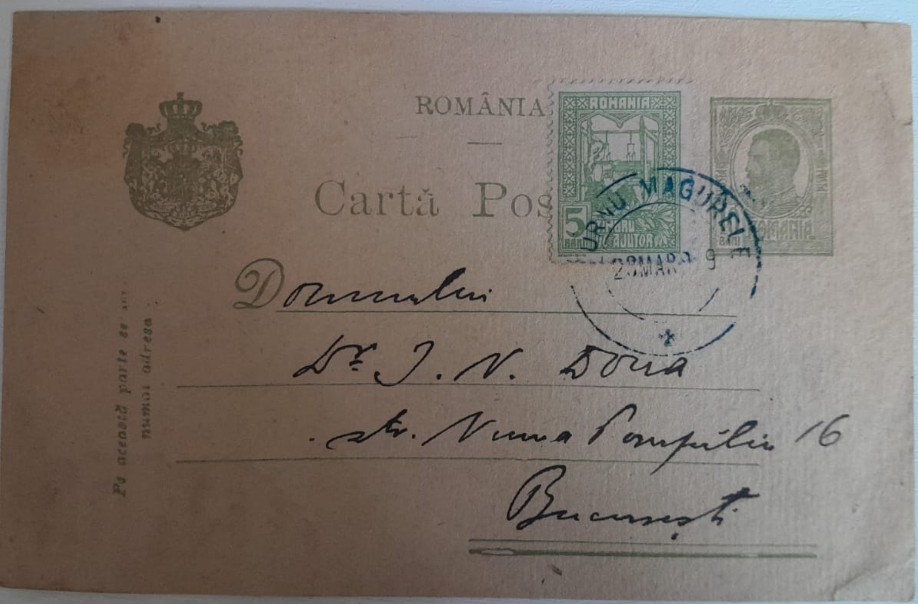 ROMÂNIA
Cartă Pos
ROMANIA
5
TIMBRU
DE AJUTOR
ROMANIA
TURNU MAGURELE
28 MAR 9
Domnului
Dr. I. N. Dona
str. Numa Pompiliu 16
București
Pe această parte se
numai adresa